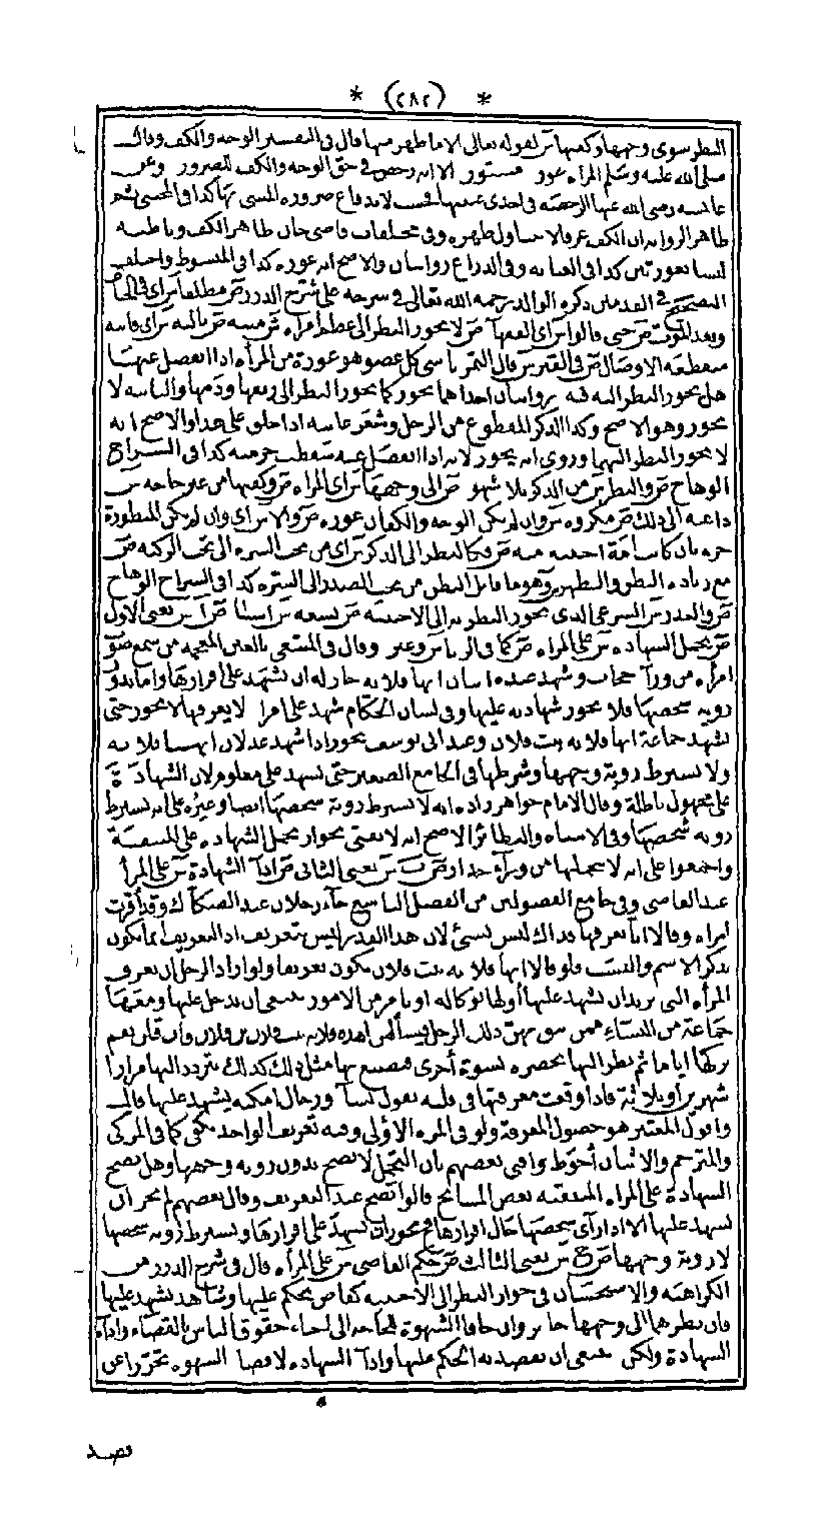 * (٤٨٢) *
النظر سوى وجهها وكفيها ش لقوله تعالى الا ما ظهر منها قال في التفسير الوجه والكف وقال
صلى الله عليه وسلم المرأة عورة مستورة الا انه رخص في حق الوجه والكف للضرورة وعن
عائشة رضي الله عنها الرخصة في احدى عينيها فحسب لاندفاع ضرورة المشي بها كذا في
ظاهر الرواية ان الكف عرفا لا يتناول ظهره وفي مختلفات قاضي خان ظاهر الكف وباطنه
ليسا بعورتين كذا في الغاية وفي الذراع روايتان والاصح انه عورة كذا في المبسوط واختلف
التصحيح في القدمين ذكره الوالد رحمه الله تعالى في شرحه على شرح الدرر ص مطلقا ش اي في الحياة
وبعد الموت ص حتى قالوا ش اي الفقهاء ص لا يجوز النظر الى عظام امرأة ش ميتة ص بالية ش اي فانية
متقطعة الاوصال ص في القبر ش قال التمرتاشي كل عضو هو عورة من المرأة اذا انفصل عنها
هل يجوز النظر اليه فيه روايتان احداهما يجوز كما يجوز النظر الى ريقها ودمها والثانية لا
يجوز وهو الاصح وكذا الذكر المقطوع من الرجل وشعر عانته اذا حلق على هذا والاصح انه
لا يجوز النظر اليهما وروي انه يجوز لانه اذا انفصل عنه سقطت حرمته كذا في السراج
الوهاج ص والنظر ش من الذكر بلا شهوة ص الى وجهها ش اي المرأة ص وكفيها من غير حاجة ش
داعية الى ذلك ص مكروه ش وان لم يكن الوجه والكفان عورة ص والا ش اي وان لم تكن المنظورة
حرة بان كانت امة اجنبية منه ص فكالنظر الى الذكر ش اي من تحت السرة الى تحت الركبة ص
مع زيادة البطن والظهر ش وهو ما قابل البطن من تحت الصدر الى السرة كذا في السراج الوهاج
ص والعذر ش الشرعي الذي يجوز النظر به الى الاجنبية ص تسعة ش اشياء ص ا ش يعني الاول
ص تحمل الشهادة ش على المرأة ص كما في الزنا ش وغيره وقال في المبتغى بالغين المعجمة من سمع صوت
امرأة من وراء حجاب وشهد عنده اثنان انها فلانة جاز له ان يشهد على اقرارها واما بدون
رؤية شخصها فلا يجوز شهادته عليها وفي لسان الحكام شهد على امرأة لا يعرفها لا يجوز حتى
يشهد جماعة انها فلانة بنت فلان وعند ابي يوسف يجوز اذا شهد عدلان انها فلانة
ولا يشترط رؤية وجهها وشرطها في الجامع الصغير حتى يشهد على معلوم لان الشهادة
على مجهول باطلة وقال الامام خواهر زاده انه لا يشترط رؤية شخصها ايضا وغيره على انه يشترط
رؤية شخصها وفي الاشباه والنظائر الاصح انه لا يفتى بجواز تحمل الشهادة على المتنقبة
واجمعوا على انه لا يتحملها من وراء جدار ص ب ش يعني الثاني ص اداء الشهادة ش على المرأة
عند القاضي وفي جامع الفصولين من الفصل التاسع جاء رجلان عند الصكاك وقد اقرت
امرأة وقالا انا نعرفها فذاك ليس بشيء لان هذا القدر ليس بتعريف اذ التعريف انما يكون
بذكر الاسم والنسب فلو قالا انها فلانة بنت فلان يكون تعريفا ولو اراد الرجل ان يعرف
المرأة التي يريد ان يشهد عليها أولها بوكالة او بامر من الامور ينبغي ان يدخل عليها ومعها
جماعة من النساء ممن يثق بهن ذلك الرجل فيسألهن اهذه فلانة بنت فلان بن فلان فان قلن نعم
تركها اياما ثم نظر اليها بحضرة نسوة أخرى فيصنع بها مثل ذلك كذلك يتردد اليها مرارا
شهرين أو ثلاثة فاذا وقعت معرفتها في قلبه بقول نساء ورجال امكنه يشهد عليها قال
واقول المعتبر هو حصول المعرفة ولو في المرة الأولى وفيه تعريف الواحد يكفي كما في المزكي
والمترجم والاثنان أحوط وافتى بعضهم بان التحمل لا يصح بدون رؤية وجهها وهل يصح
الشهادة على المرأة المتنقبة بعض المشايخ قالوا تصح عند التعريف وقال بعضهم لم يجز ان
يشهد عليها الا اذا رأى شخصها حال اقرارها فح يجوز ان يشهد على اقرارها ويشترط رؤية شخصها
لا رؤية وجهها ص ج ش يعني الثالث ص حكم القاضي ش على المرأة قال في شرح الدرر من
الكراهية والاستحسان في جواز النظر الى الاجنبية كقاض يحكم عليها وشاهد يشهد عليها
فان نظرهما الى وجهها جائز وان خافا الشهوة للحاجة الى احياء حقوق الناس بالقضاء واداء
الشهادة ولكن ينبغي ان يقصد به الحكم عليها واداء الشهادة لا قضاء الشهوة تحرزا عن
قصد